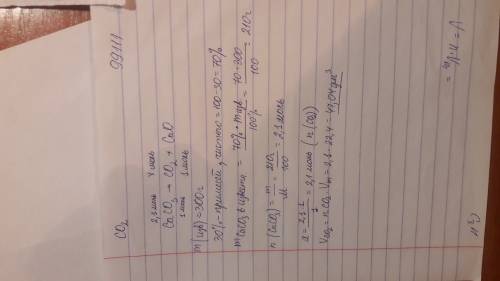 99111
CO₂
2,1 моль x моль
CaCO₃ → CO₂ + CaO
1 моль 1 моль
m(изв) = 300г
30% - примесей, чистого = 100-30 = 70%
mCaCO₃ в извест = 70% * mизв / 100% = 70 * 300 / 100 = 210г
n(CaCO₃) = m / M = 210 / 100 = 2,1 моль
x = 2,1 * 1 / 1 = 2,1 моль (nCO₂)
VCO₂ = nCO₂ · Vm = 2,1 · 22,4 = 47,04 дм³
V = n · Vm =